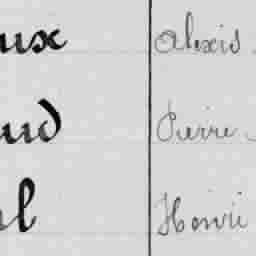 ux Alexis
ud Pierre
l Henri